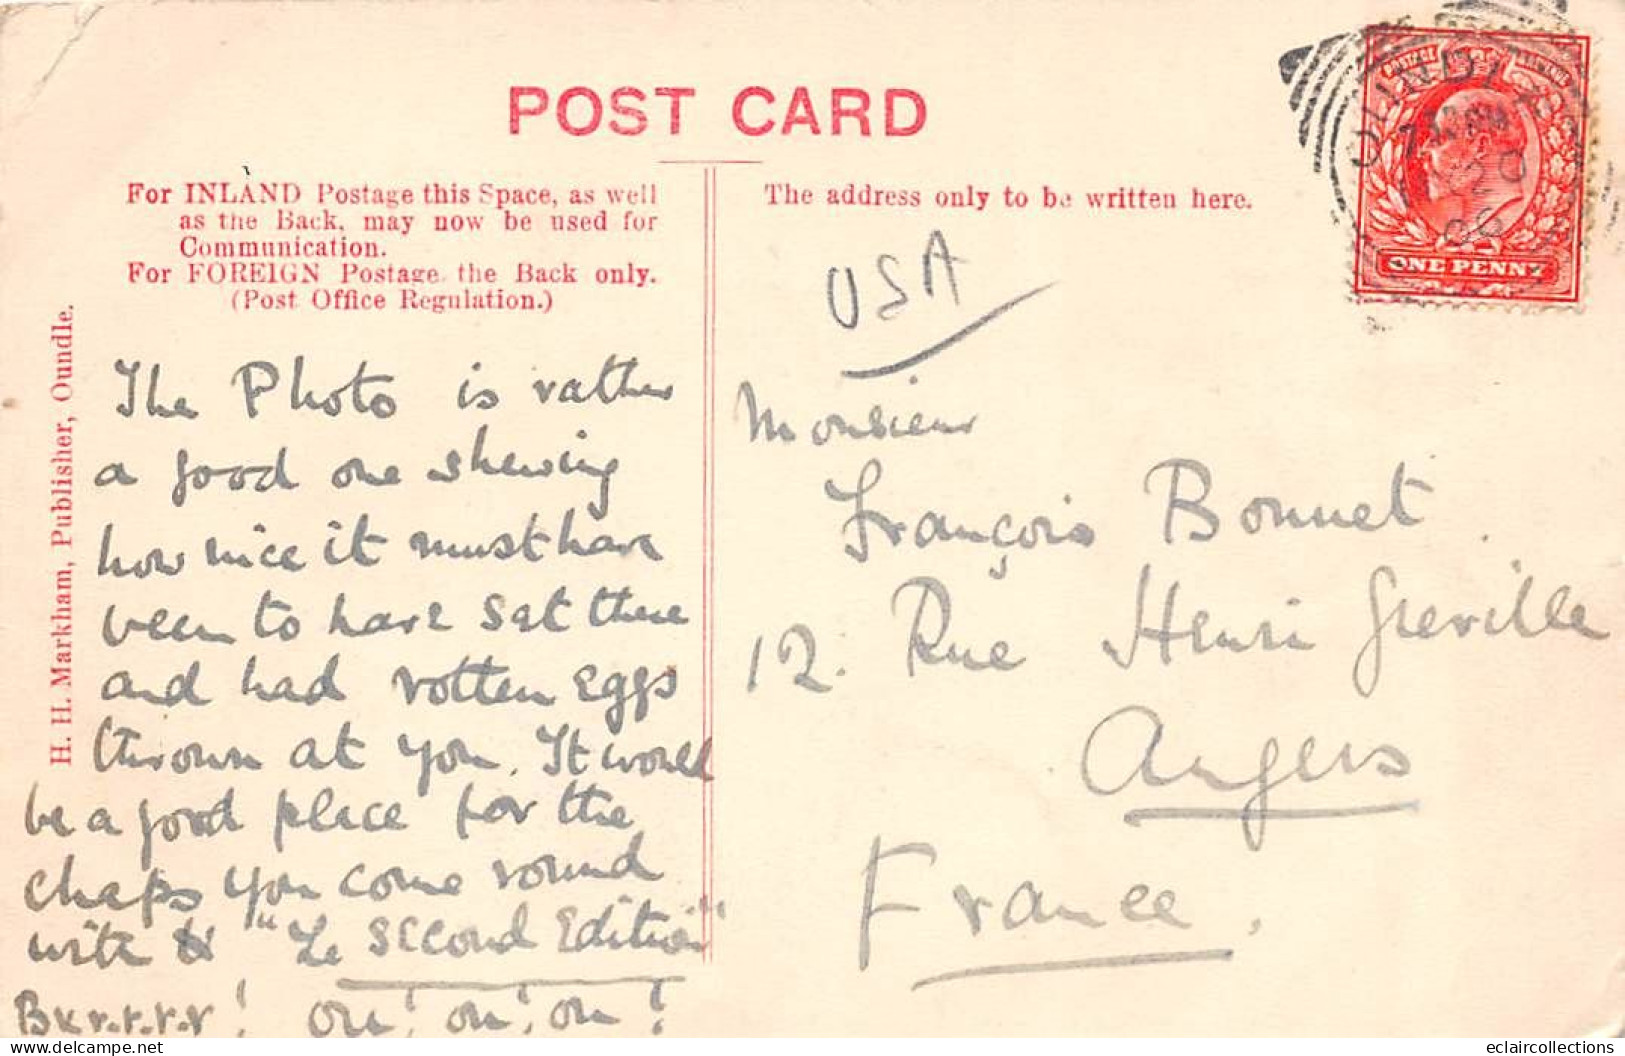 POST CARD
For INLAND Postage this Space, as well
as the Back, may now be used for
Communication.
For FOREIGN Postage the Back only.
(Post Office Regulation.)
The address only to be written here.
H. H. Markham, Publisher, Oundle.
OUNDLE
06
ONE PENNY
USA
The Photo is rather
a good one shewing
how nice it must have
been to have sat there
and had rotten eggs
thrown at you. It would
be a good place for the
chaps you come round
with "Le Second Edition"
Bxr.r.r.r! on! on! on!
Monsieur
François Bonnet.
12. Rue Henri Greville
Angers
France.
eclaircollections